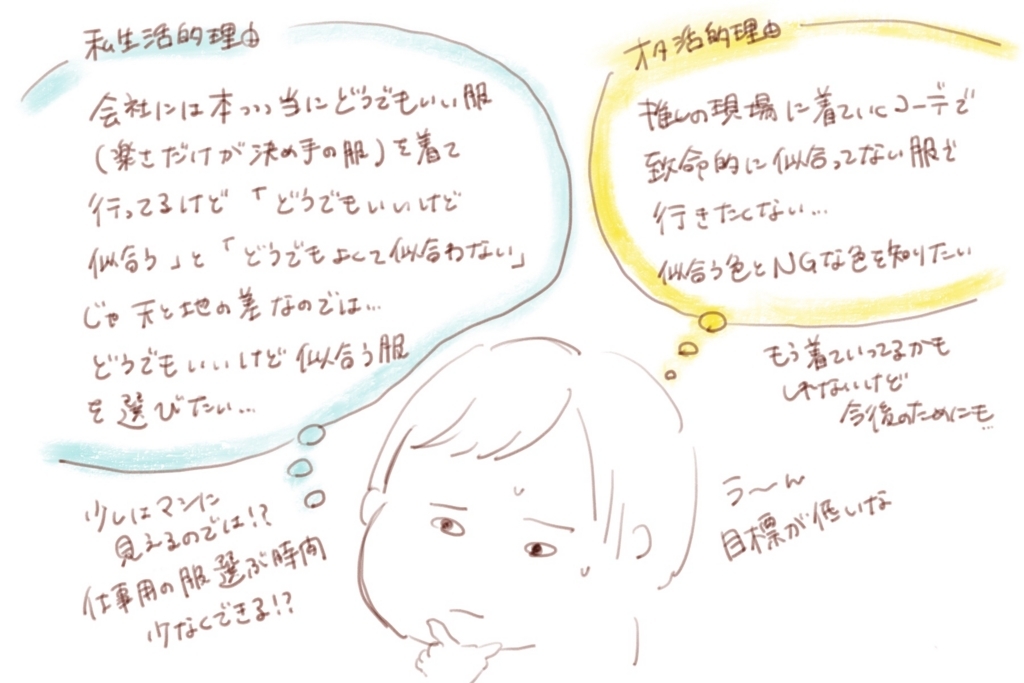 私生活的理由
会社には本っっ当にどうでもいい服
(楽さだけが決め手の服)を着て
行ってるけど「どうでもいいけど
似合う」と「どうでもよくて似合わない」
じゃ天と地の差なのでは…
どうでもいいけど似合う服
を選びたい…
少しはマシに
見えるのでは!?
仕事用の服選ぶ時間
少なくできる!?
オタ活的理由
推しの現場に着ていくコーデで
致命的に似合ってない服で
行きたくない…
似合う色とNGな色を知りたい
もう着ていってるかも
しれないけど
今後のためにも…
う〜ん
目標が低いな